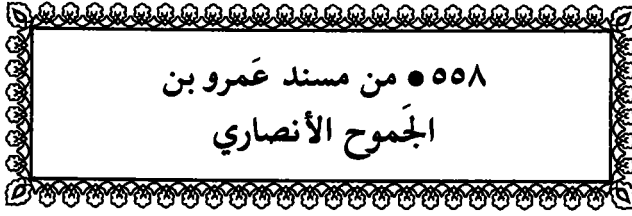 ٥٥٨ • من مسند عَمرو بن
الجَموح الأنصاري